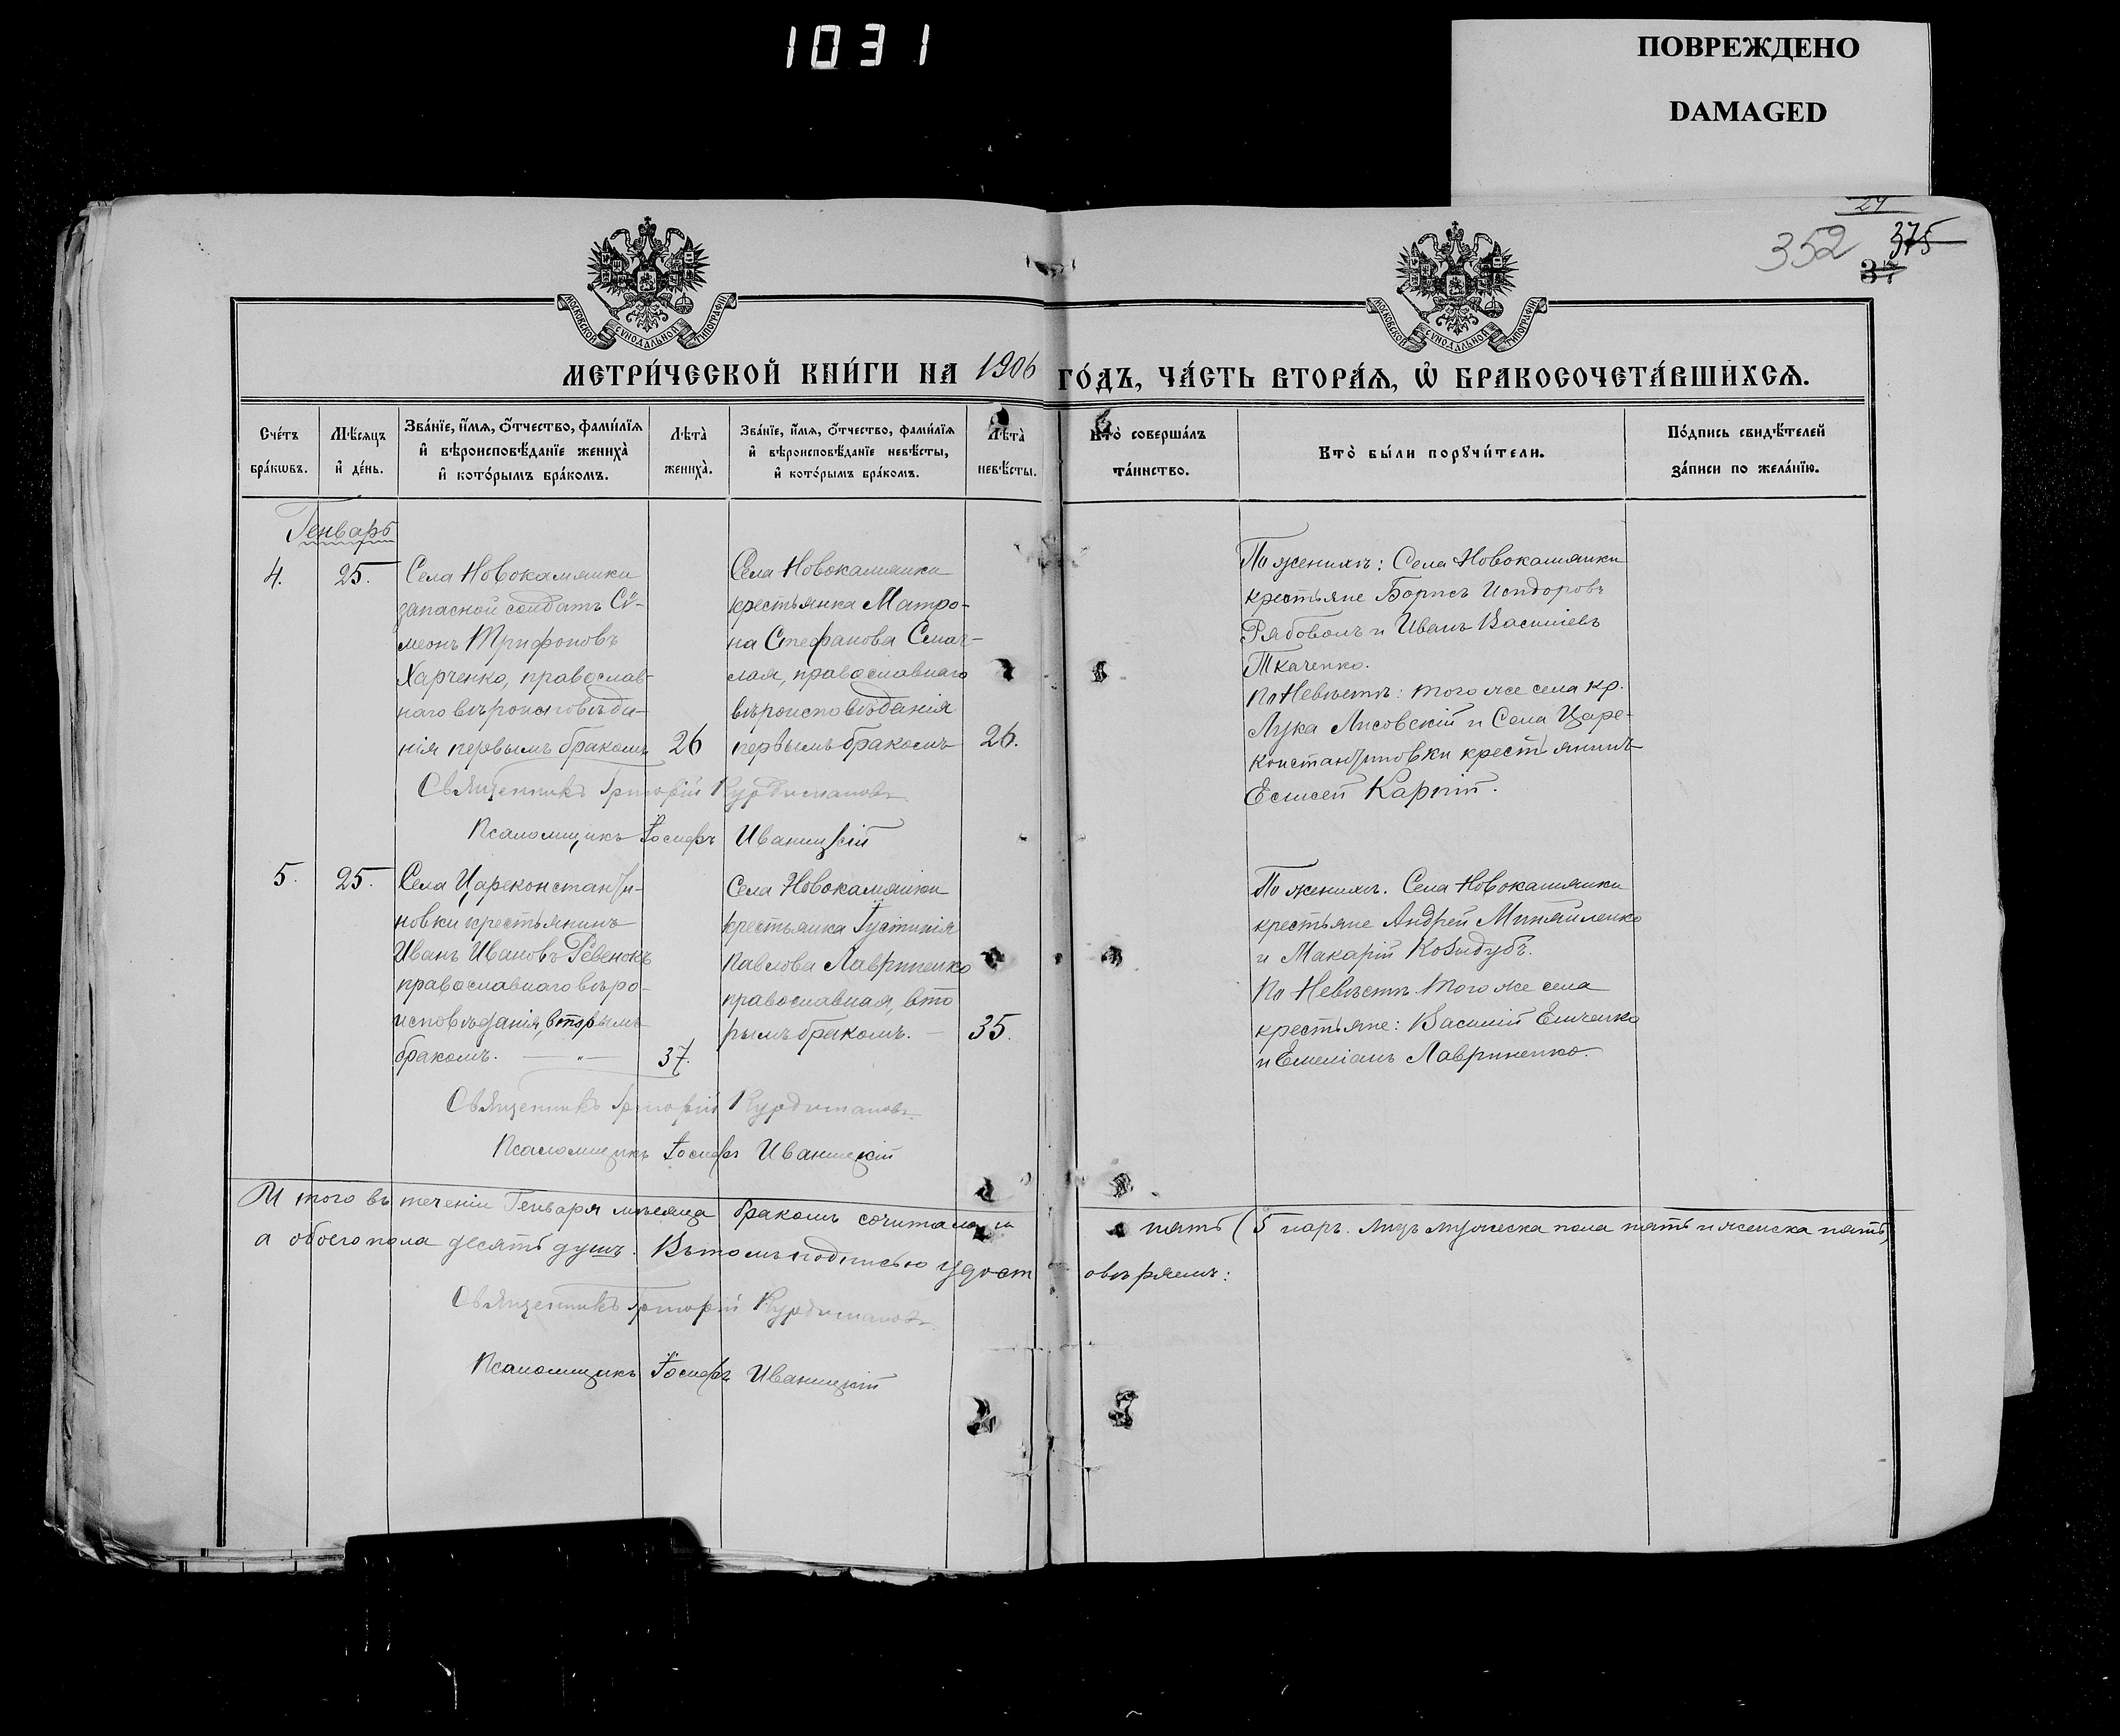 1031
ПОВРЕЖДЕНО
DAMAGED
24
352 375
37
МОСКОВСКОЙ СѴНОДАЛЬНОЙ ТИПОГРАФІИ
МОСКОВСКОЙ СѴНОДАЛЬНОЙ ТИПОГРАФІИ
МЕТРИ́ЧЕСКОЙ КНИ́ГИ НА 1906 ГО́ДЪ, ЧА́СТЬ ВТОРА́Ѧ, Ѡ҆ БРАКОСОЧЕТА́ВШИХСѦ.
Сче́тъ
бра́кѡвъ.
Мѣ́сѧцъ
и҆ де́нь.
Зва́нїе, и҆́мѧ, ѻ҆́тчество, фами́лїѧ
и҆ вѣроисповѣ́данїе жениха̀
и҆ кото́рымъ бра́комъ.
Лѣта̀
жениха̀.
Зва́нїе, и҆́мѧ, ѻ҆́тчество, фами́лїѧ
и҆ вѣроисповѣ́данїе невѣ́сты,
и҆ кото́рымъ бра́комъ.
Лѣта̀
невѣ́сты.
Кто̀ соверша́лъ
та́инство.
Кто̀ бы́ли порꙋчи́тели.
По́дпись свидѣ́телей
за́писи по жела́нїю.
Генварь
4. 25.
Села Новокамянки
запасной солдатъ Сѵ-
меонъ Трифоновъ
Харченко, православ-
наго вѣроисповѣда-
нія первымъ бракомъ
26
Села Новокамянки
крестьянка Матро-
на Стефанова Смаг-
лая, православнаго
вѣроисповѣданія
первымъ бракомъ
26.
По женихѣ: Села Новокамянки
крестьяне Борисъ Исидоровъ
Рябоволъ и Иванъ Васильевъ
Ткаченко.
По Невѣстѣ: того же села кр.
Лука Лисовскій и Села Царе-
константиновки крестьянинъ
Елисей Карпій.
Священникъ Григорій Курдимановъ
Псаломщикъ Іосифъ Иваницкій
5. 25.
Села Цареконстанти-
новки крестьянинъ
Иванъ Ивановъ Ревенокъ
православнаго вѣро-
исповѣданія, вторымъ
бракомъ. — „ —
37.
Села Новокамянки
крестьянка Іустинія
Павлова Лавриненко
православная, вто
рымъ бракомъ. —
35.
По женихѣ. Села Новокамянки
крестьяне Андрей Михайленко
и Макарій Козидубъ.
По Невѣстѣ. того же села
крестьяне: Василій Емченко
и Емеліанъ Лавриненко.
Священникъ Григорій Курдимановъ
Псаломщикъ Іосифъ Иваницкій
И того въ теченіи Генваря мѣсяца бракомъ сочиталось пять (5 паръ. Лицъ мужеска пола пять и женска пять)
а обоего пола десять душъ. Въ томъ подписью удостовѣряемъ:
Священникъ Григорій Курдимановъ
Псаломщикъ Іосифъ Иваницкій